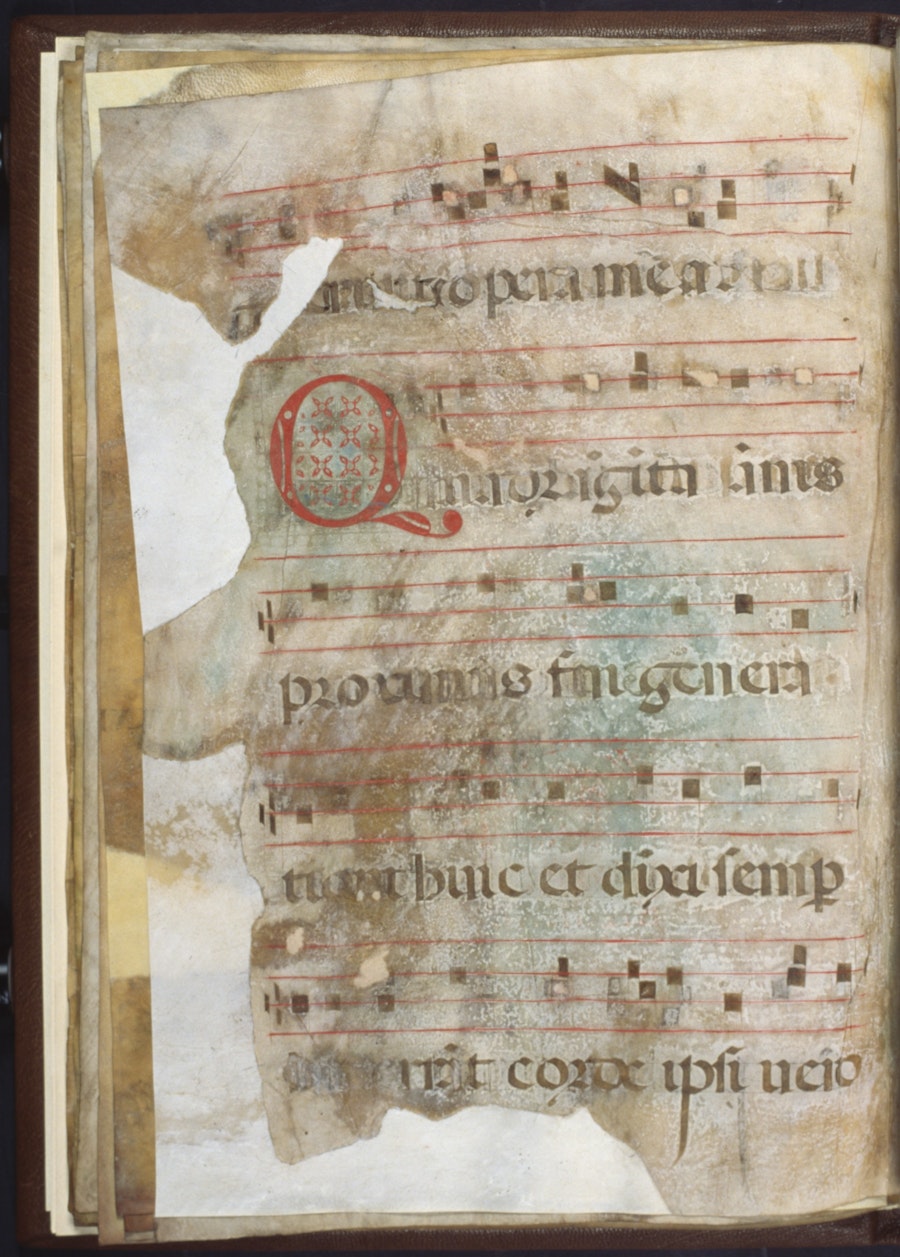 opera mea
Quadragita annis
proximus fui genera
tioni huic et dixi semꝑ
errāt corde ipsi uero